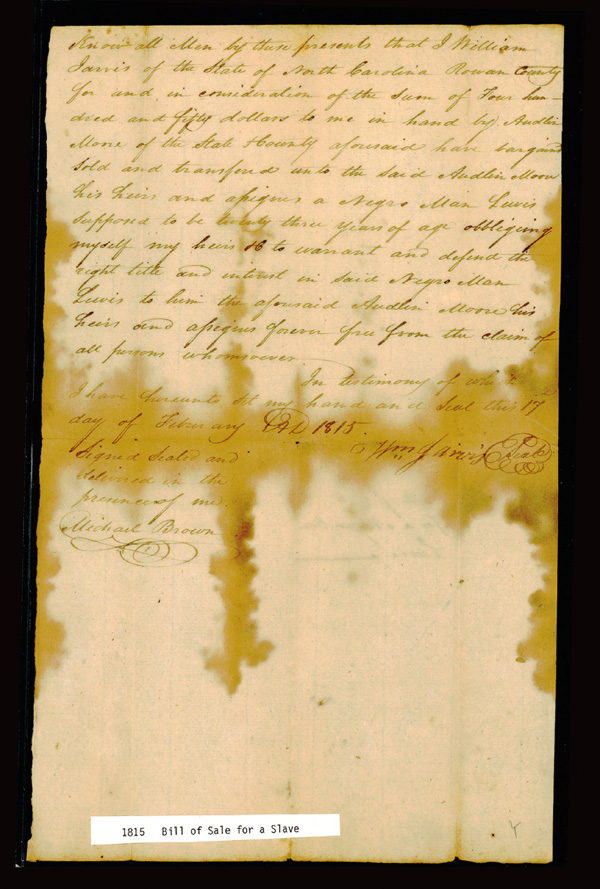 Know all Men by these presents that I William
Jarvis of the State of North Carolina Rowan County
for and in consideration of the sum of Four hun-
dred and fifty dollars to me in hand by Audlin
Moore of the State & County aforesaid have bargaind
Sold and transfered unto the said Audlin Moore
his heirs and assignes a Negro Man Lewis
Supposed to be twenty three years of age obbligeing
myself my heirs to warrant and defend the
right title and interest in said Negro Man
Lewis to him the aforesaid Audlin Moore his
heirs and assignes forever free from the claim of
all persons whomsoever
In testimony of which
I have hereunto Set my hand and Seal this 17
day of February AD 1815.
Wm Jarvis Seal
Signed Sealed and
delivered in the
presence of me.
Michael Brown
1815 Bill of Sale for a Slave